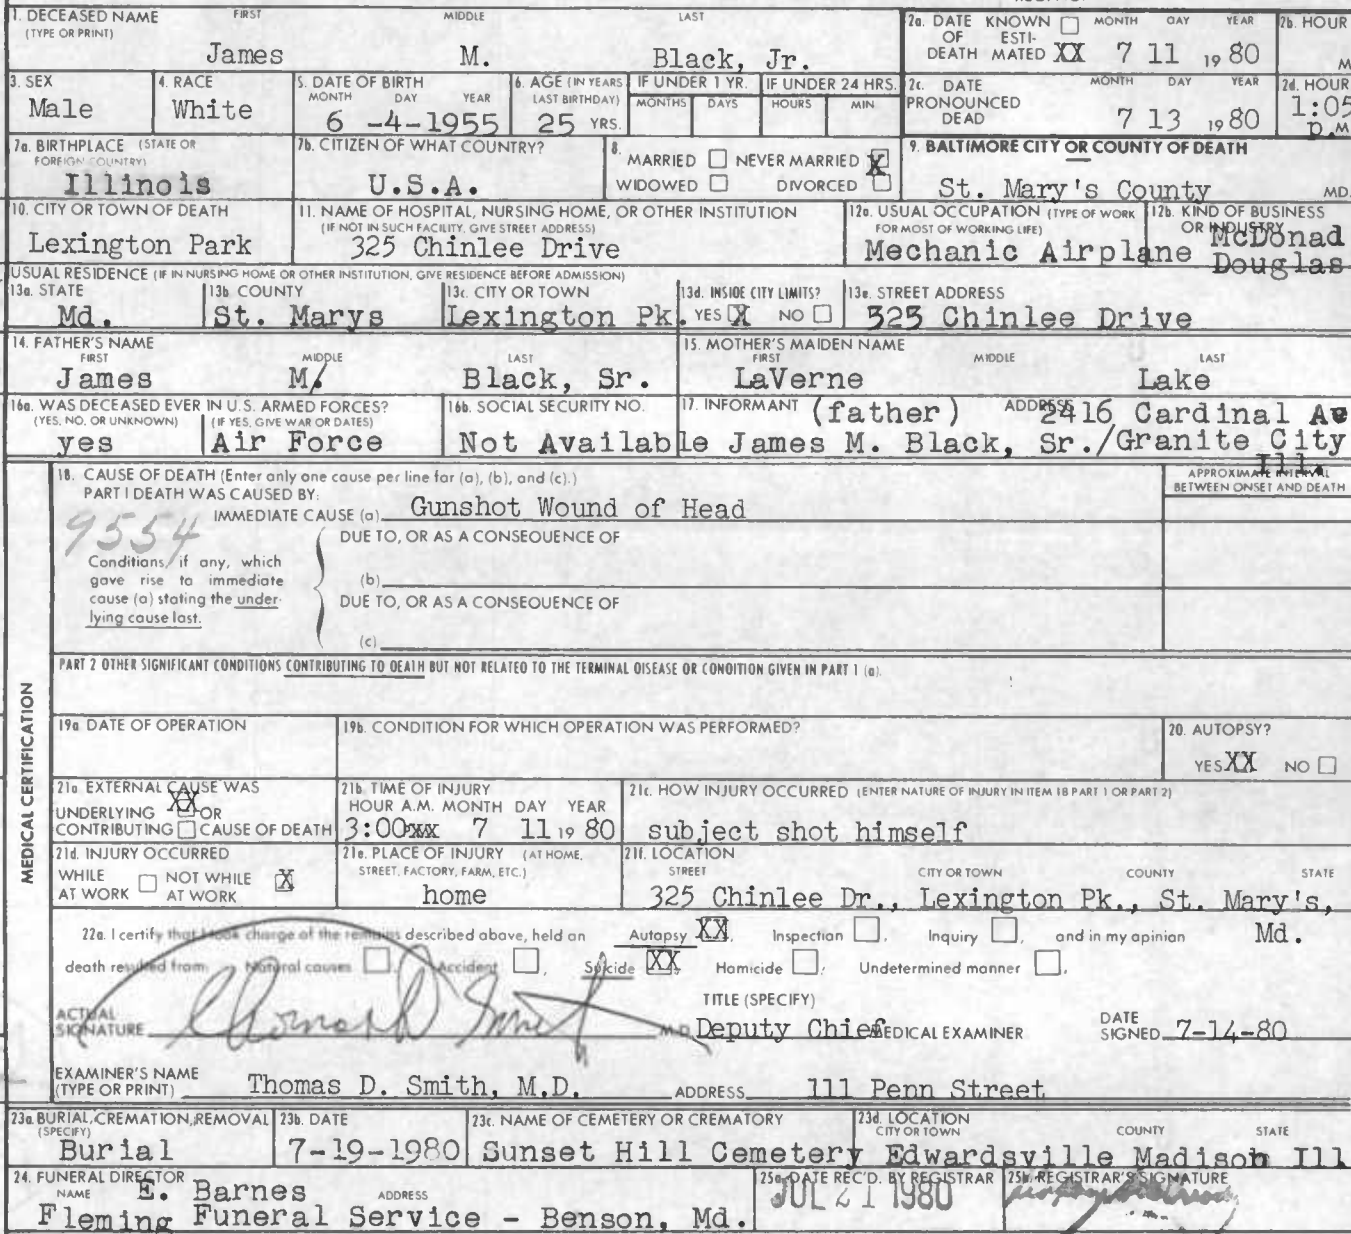 1. DECEASED NAME FIRST MIDDLE LAST
(TYPE OR PRINT)
James M. Black, Jr.
2a. DATE KNOWN MONTH DAY YEAR
OF ESTI-
DEATH MATED XX 7 11 1980
2b. HOUR
M
3. SEX
Male
4. RACE
White
5. DATE OF BIRTH
MONTH DAY YEAR
6 -4-1955
6. AGE (IN YEARS
LAST BIRTHDAY)
25 YRS.
IF UNDER 1 YR.
MONTHS DAYS
IF UNDER 24 HRS.
HOURS MIN
2c. DATE MONTH DAY YEAR
PRONOUNCED
DEAD 7 13 1980
2d. HOUR
1:05
p.M
7a. BIRTHPLACE (STATE OR
FOREIGN COUNTRY)
Illinois
7b. CITIZEN OF WHAT COUNTRY?
U.S.A.
8.
MARRIED NEVER MARRIED X
WIDOWED DIVORCED
9. BALTIMORE CITY OR COUNTY OF DEATH
St. Mary's County MD.
10. CITY OR TOWN OF DEATH
Lexington Park
11. NAME OF HOSPITAL, NURSING HOME, OR OTHER INSTITUTION
(IF NOT IN SUCH FACILITY, GIVE STREET ADDRESS)
325 Chinlee Drive
12a. USUAL OCCUPATION (TYPE OF WORK
FOR MOST OF WORKING LIFE)
Mechanic Airplane
12b. KIND OF BUSINESS
OR INDUSTRY
McDonad
Douglas
USUAL RESIDENCE (IF IN NURSING HOME OR OTHER INSTITUTION, GIVE RESIDENCE BEFORE ADMISSION)
13a. STATE
Md.
13b. COUNTY
St. Marys
13c. CITY OR TOWN
Lexington Pk.
13d. INSIDE CITY LIMITS?
YES X NO
13e. STREET ADDRESS
325 Chinlee Drive
14. FATHER'S NAME
FIRST MIDDLE LAST
James M. Black, Sr.
15. MOTHER'S MAIDEN NAME
FIRST MIDDLE LAST
LaVerne Lake
16a. WAS DECEASED EVER IN U.S. ARMED FORCES?
(YES, NO, OR UNKNOWN) (IF YES, GIVE WAR OR DATES)
yes Air Force
16b. SOCIAL SECURITY NO.
Not Available
17. INFORMANT (father) ADDRESS 2416 Cardinal Av
James M. Black, Sr./Granite City
Ill.
18. CAUSE OF DEATH (Enter only one cause per line for (a), (b), and (c).)
PART I DEATH WAS CAUSED BY:
IMMEDIATE CAUSE (a) Gunshot Wound of Head
APPROXIMATE INTERVAL
BETWEEN ONSET AND DEATH
9554
DUE TO, OR AS A CONSEQUENCE OF
Conditions, if any, which
gave rise to immediate
cause (a) stating the under-
lying cause last.
(b)
DUE TO, OR AS A CONSEQUENCE OF
(c)
PART 2 OTHER SIGNIFICANT CONDITIONS CONTRIBUTING TO DEATH BUT NOT RELATED TO THE TERMINAL DISEASE OR CONDITION GIVEN IN PART 1 (a).
MEDICAL CERTIFICATION
19a DATE OF OPERATION
19b. CONDITION FOR WHICH OPERATION WAS PERFORMED?
20. AUTOPSY?
YES XX NO
21a EXTERNAL CAUSE WAS
UNDERLYING XX OR
CONTRIBUTING CAUSE OF DEATH
21b. TIME OF INJURY
HOUR A.M. MONTH DAY YEAR
3:00xx 7 11 1980
21c. HOW INJURY OCCURRED (ENTER NATURE OF INJURY IN ITEM 18 PART 1 OR PART 2)
subject shot himself
21d. INJURY OCCURRED
WHILE NOT WHILE
AT WORK AT WORK X
21e. PLACE OF INJURY (AT HOME,
STREET, FACTORY, FARM, ETC.)
home
21f. LOCATION
STREET CITY OR TOWN COUNTY STATE
325 Chinlee Dr., Lexington Pk., St. Mary's,
Md.
22a. I certify that I took charge of the remains described above, held an Autopsy XX, Inspection , Inquiry , and in my opinion
death resulted from: Natural causes , Accident , Suicide XX, Homicide , Undetermined manner .
ACTUAL
SIGNATURE Thomas D Smith M.D.
TITLE (SPECIFY)
Deputy Chief MEDICAL EXAMINER
DATE
SIGNED 7-14-80
EXAMINER'S NAME
(TYPE OR PRINT) Thomas D. Smith, M.D. ADDRESS 111 Penn Street
23a. BURIAL, CREMATION, REMOVAL
(SPECIFY)
Burial
23b. DATE
7-19-1980
23c. NAME OF CEMETERY OR CREMATORY
Sunset Hill Cemetery
23d. LOCATION
CITY OR TOWN COUNTY STATE
Edwardsville Madison Ill
24. FUNERAL DIRECTOR
NAME E. Barnes ADDRESS
Fleming Funeral Service - Benson, Md.
25a. DATE REC'D. BY REGISTRAR
JUL 21 1980
25b. REGISTRAR'S SIGNATURE